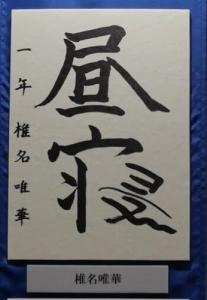 昼寝
一年 椎名唯華
椎名唯華